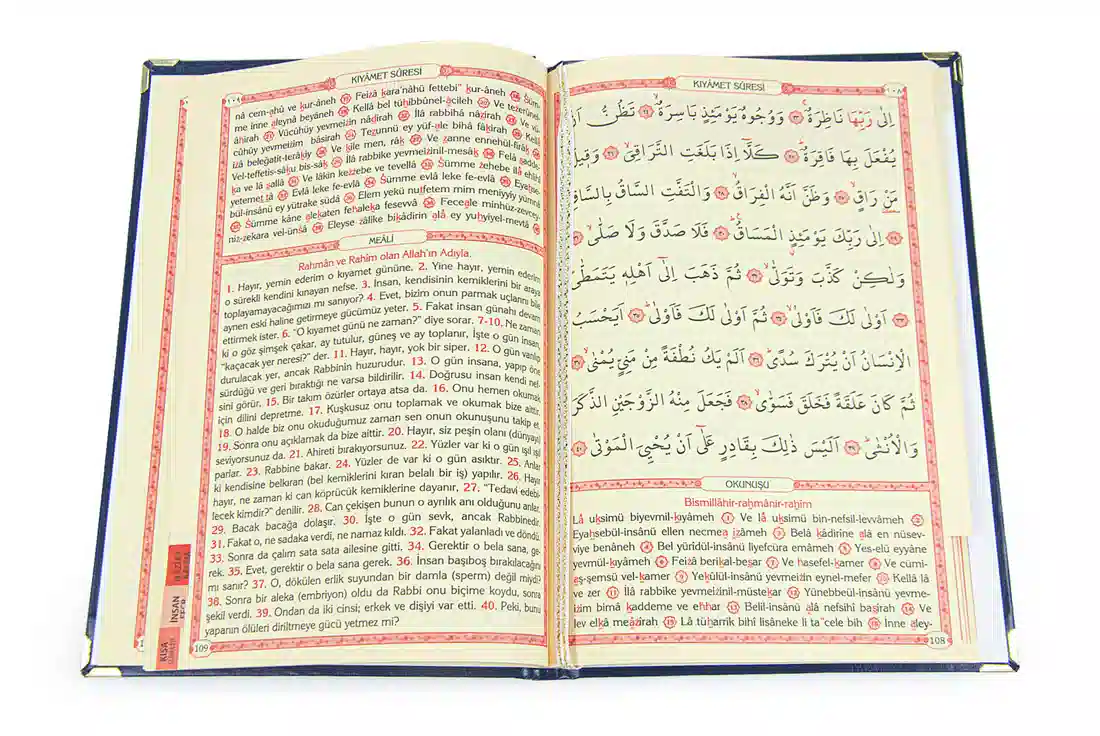 KIYÂMET SÛRESİ
١٠٨
اِلٰى رَبِّهَا نَاظِرَةٌۚ ﴿٢٣﴾ وَوُجُوهٌ يَوْمَئِذٍ بَاسِرَةٌۙ ﴿٢٤﴾ تَظُنُّ اَنْ
يُفْعَلَ بِهَا فَاقِرَةٌۜ ﴿٢٥﴾ كَلَّٓا اِذَا بَلَغَتِ التَّرَاقِيَۙ ﴿٢٦﴾ وَق۪يلَ
مَنْ رَاقٍۙ ﴿٢٧﴾ وَظَنَّ اَنَّهُ الْفِرَاقُۙ ﴿٢٨﴾ وَالْتَفَّتِ السَّاقُ بِالسَّاقِۙ
﴿٢٩﴾ اِلٰى رَبِّكَ يَوْمَئِذٍ الْمَسَاقُۜ ﴿٣٠﴾ فَلَا صَدَّقَ وَلَا صَلّٰىۙ ﴿٣١﴾
وَلٰكِنْ كَذَّبَ وَتَوَلّٰىۙ ﴿٣٢﴾ ثُمَّ ذَهَبَ اِلٰٓى اَهْلِه۪ يَتَمَطّٰىۜ
﴿٣٣﴾ اَوْلٰى لَكَ فَاَوْلٰىۙ ﴿٣٤﴾ ثُمَّ اَوْلٰى لَكَ فَاَوْلٰىۜ ﴿٣٥﴾ اَيَحْسَبُ
الْاِنْسَانُ اَنْ يُتْرَكَ سُدًىۜ ﴿٣٦﴾ اَلَمْ يَكُ نُطْفَةً مِنْ مَنِيٍّ يُمْنٰىۙ ﴿٣٧﴾
ثُمَّ كَانَ عَلَقَةً فَخَلَقَ فَسَوّٰىۙ ﴿٣٨﴾ فَجَعَلَ مِنْهُ الزَّوْجَيْنِ الذَّكَرَ
وَالْاُنْثٰىۜ ﴿٣٩﴾ اَلَيْسَ ذٰلِكَ بِقَادِرٍ عَلٰٓى اَنْ يُحْيِيَ الْمَوْتٰى ﴿٤٠﴾
OKUNUŞU
Bismillâhir-rahmânir-rahîm
Lâ uksimü biyevmil-kıyâmeh 1 Ve lâ uksimü bin-nefsil-levvâmeh 2
Eyahsebül-insânü ellen necmea ızâmeh 3 Belâ kâdirîne alâ en nüsev-
viye benâneh 4 Bel yürîdül-insânü liyefcüra emâmeh 5 Yes-elü eyyâne
yevmül-kıyâmeh 6 Feizâ berikal-besar 7 Ve hasefel-kamer 8 Ve cümi-
aş-şemsü vel-kamer 9 Yekûlül-insânü yevmeizin eynel-mefer 10 Kellâ lâ
ve zer 11 İlâ rabbike yevmeizinil-müstekar 12 Yünebbeül-insânü yevme-
izim bimâ kaddeme ve ehhar 13 Belil-insânü alâ nefsihî basîrah 14 Ve
lev elkâ meâzîrah 15 Lâ tüharrik bihî lisâneke li ta"cele bih 16 İnne aley-
108
١٠٩
KIYÂMET SÛRESİ
nâ cem-ahû ve kur-âneh 17 Feizâ kara'nâhü fettebi" kur-âneh 18 Süm-
me inne aleynâ beyâneh 19 Kellâ bel tühibbûnel-âcileh 20 Ve tezerûnel-
âhirah 21 Vücûhüy yevmeizin nâdırah 22 İlâ rabbihâ nâzırah 23 Ve vü-
cûhüy yevmeizim bâsirah 24 Tezunnü ey yüf-ale bihâ fâkırah 25 Kellâ
izâ belegatit-terâkıy 26 Ve kîle men, râk 27 Ve zanne ennehül-firâk 28
Vel-teffetis-sâku bis-sâk 29 İlâ rabbike yevmeizinil-mesâk 30 Felâ sadde-
ka ve lâ sallâ 31 Ve lâkin kezzebe ve tevellâ 32 Sümme zehebe ilâ ehlihî
yetemettâ 33 Evlâ leke fe-evlâ 34 Sümme evlâ leke fe-evlâ 35 Eyahse-
bül-insânü ey yütrake südâ 36 Elem yekü nutfetem mim meniyyiy yümnâ
37 Sümme kâne alekaten fehaleka fesevvâ 38 Feceale minhüz-zevcey-
niz-zekera vel-ünsâ 39 Eleyse zâlike bikâdirin alâ ey yuhyiyel-mevtâ 40
MEÂLİ
Rahmân ve Rahîm olan Allah'ın Adıyla.
1. Hayır, yemin ederim o kıyamet gününe. 2. Yine hayır, yemin ederim
o sürekli kendini kınayan nefse. 3. İnsan, kendisinin kemiklerini bir araya
toplayamayacağımızı mı sanıyor? 4. Evet, bizim onun parmak uçlarını bile
aynen eski haline getirmeye gücümüz yeter. 5. Fakat insan günahı devam
ettirmek ister. 6. “O kıyamet günü ne zaman?” diye sorar. 7-10. Ne zaman
ki o göz şimşek çakar, ay tutulur, güneş ve ay toplanır, İşte o gün insan,
“kaçacak yer neresi?” der. 11. Hayır, hayır, yok bir siper. 12. O gün varılıp
durulacak yer, ancak Rabbinin huzurudur. 13. O gün insana, yapıp öne
sürdüğü ve geri bıraktığı ne varsa bildirilir. 14. Doğrusu insan kendi nef-
sini görür. 15. Bir takım özürler ortaya atsa da. 16. Onu hemen okumak
için dilini depretme. 17. Kuşkusuz onu toplamak ve okumak bize aittir.
18. O halde biz onu okuduğumuz zaman sen onun okunuşunu takip et.
19. Sonra onu açıklamak da bize aittir. 20. Hayır, siz peşin olanı (dünyayı)
seviyorsunuz da. 21. Ahireti bırakıyorsunuz. 22. Yüzler var ki o gün ışıl ışıl
parlar. 23. Rabbine bakar. 24. Yüzler de var ki o gün asıktır. 25. Anlar
ki kendisine belkıran (bel kemiklerini kıran belalı bir iş) yapılır. 26. Hayır
hayır, ne zaman ki can köprücük kemiklerine dayanır, 27. “Tedavi edebi-
lecek kimdir?” denilir. 28. Can çekişen bunun o ayrılık anı olduğunu anlar.
29. Bacak bacağa dolaşır. 30. İşte o gün sevk, ancak Rabbinedir.
31. Fakat o, ne sadaka verdi, ne namaz kıldı. 32. Fakat yalanladı ve döndü.
33. Sonra da çalım sata sata ailesine gitti. 34. Gerektir o bela sana, ge-
rek. 35. Evet, gerektir o bela sana gerek. 36. İnsan başıboş bırakılacağını
mı sanır? 37. O, dökülen erlik suyundan bir damla (sperm) değil miydi?
38. Sonra bir aleka (embriyon) oldu da Rabbi onu biçime koydu, sonra
şekil verdi. 39. Ondan da iki cinsi; erkek ve dişiyi var etti. 40. Peki, bunu
yapanın ölüleri diriltmeye gücü yetmez mi?
109
İNSAN
KISA